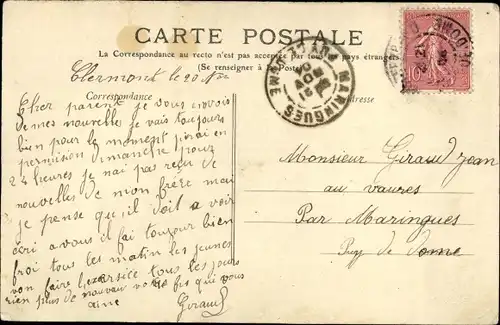 CARTE POSTALE
La Correspondance au recto n'est pas acceptée par tous les pays étrangers
(Se renseigner à la Poste)
Correspondance
Adresse
MARINGUES
PUY-DE-DOME
10
Clermont le 20
Cher parent je vous envois
de mes nouvelles je vais toujours
bien pour le moment j'irai en
permission dimanche pour
24 heures je nai pas reçu de
nouvelles de mon frère mai
je pense qu'il doit a voir
écri a vous il fai toujour bien
froi tous les matin les jeunes
von faire lexersice tous les jours
rien plus de nouveau votre fis qui vous
aime
Giraud
Monsieur Giraud Jean
au vaures
Par Maringues
Puy de dome